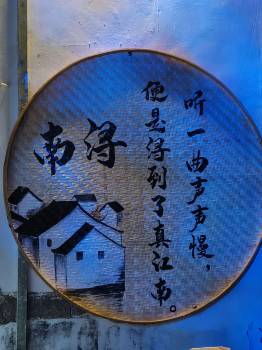 听一曲声声慢，
便是浔到了真江南。
南浔